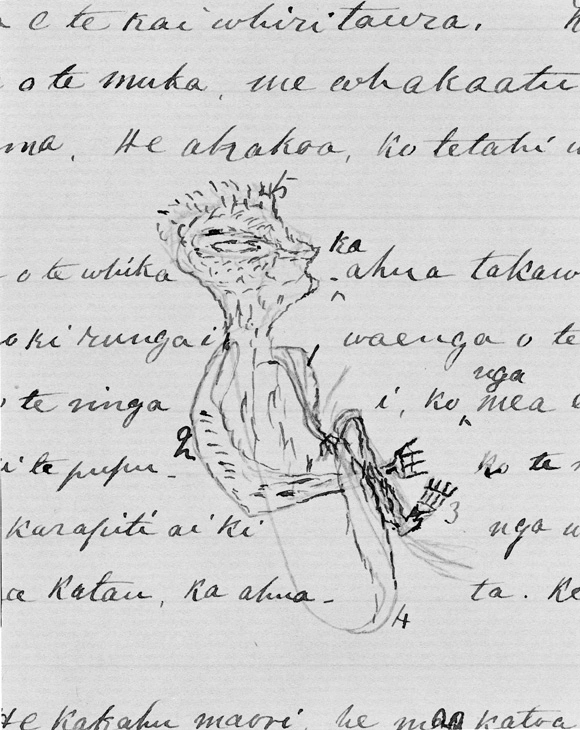 e te kai whiri taura.
o te muka, me whakaatu
ma. He ahakoa, ko tetahi
5
ka
o te whika ahua takaw
ki runga i waenga o te
nga
o te ringa i, ko ^ mea
2
i te pupu- ko te
3
kurapiti ai ki nga
katau, ka ahua- ta. Ke
4
He kakahu maori, he katoa